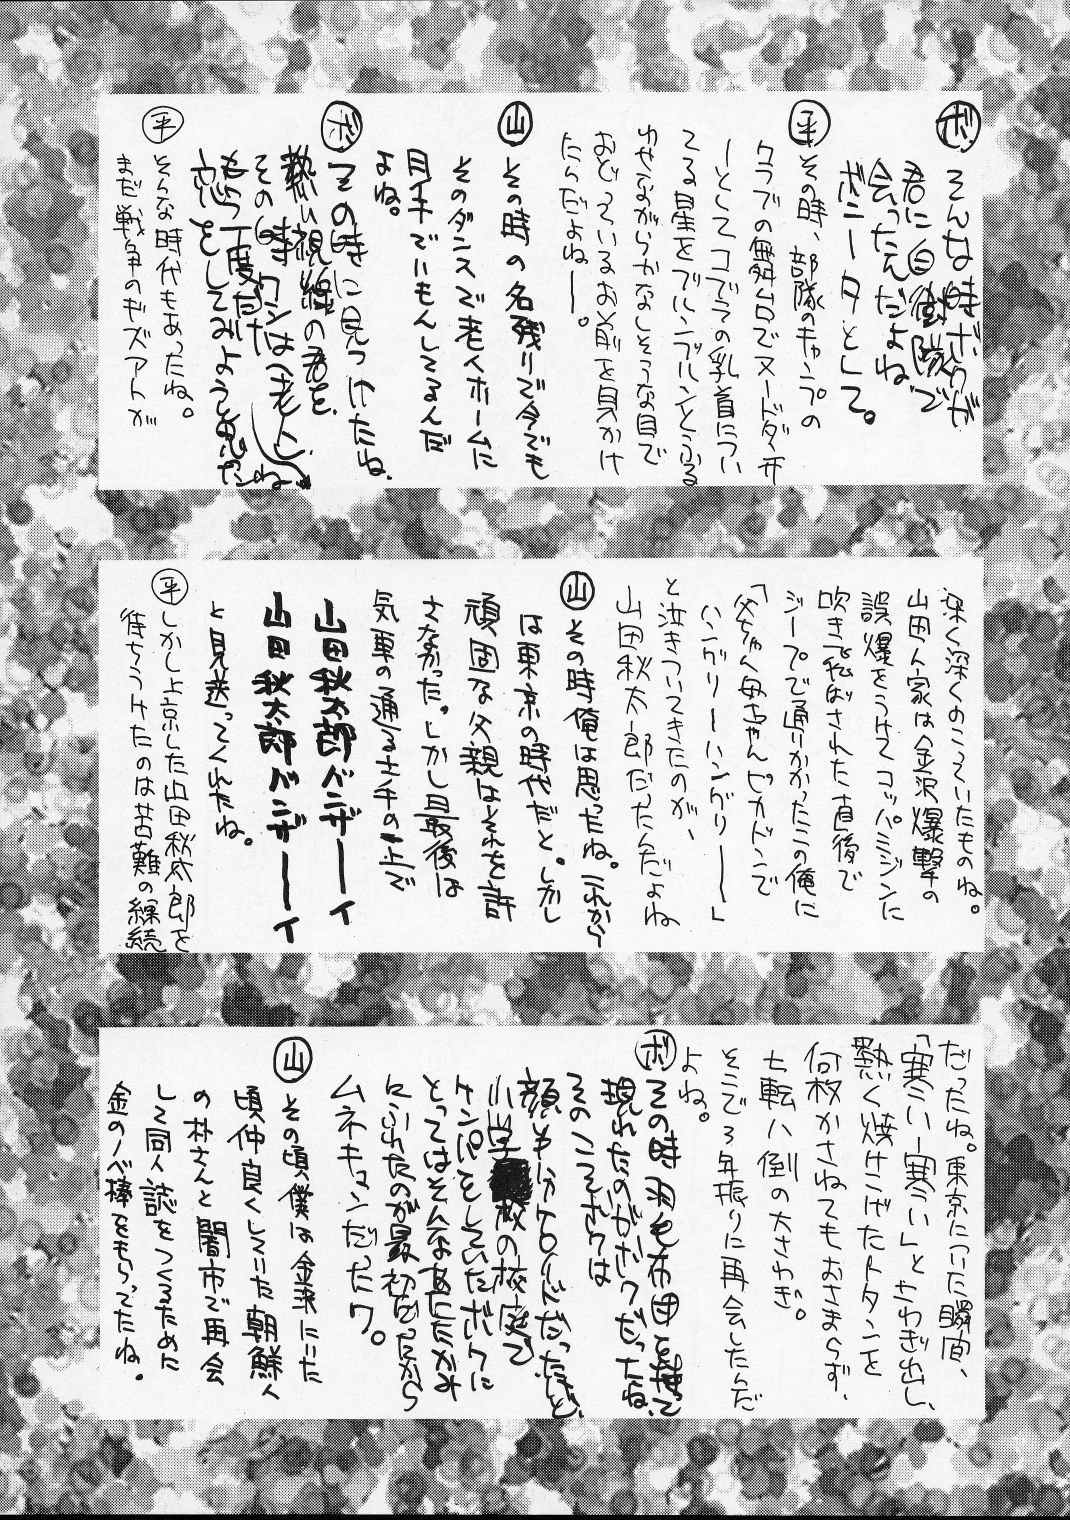 ボ そんな時ボクが
君に白樹隊で
会ったんだよね
ボニータとして。
平 その時、部隊のキャンプの
クラブの舞台でヌードダンサ
ーとしてコブラの乳首につい
てる星をブルンブルンとふる
わせながらかなしそうな目で
おどっているお前を見かけ
たんだよねー。
山 その時の名残りで今でも
そのダンスで老人ホームに
目手でいもんしてるんだ
よね。
ボ その時に見つけたね、
熱い視線の君を、
その時ワシは老人
もう丁度だったね
恋をしてみようと思った
平 そんな時代もあったね。
まだ戦争のキズアトが
深く深くのこっていたものね。
山田ん家は金沢爆撃の
誤爆をうけてコッパミジンに
吹きで飛ばされた直後で
ジープで通りかかったこの俺に
「父ちゃん母ちゃんピカドンで
ハングリーハングリーー」
と泣きついてきたのが、
山田秋太郎だったんだよね
山 その時俺は思ったね。これから
は東京の時代だと。しかし
頑固な父親はそれを許
さなかった。しかし最後は
気車の通る土手の上で
山田秋太郎バンザーーイ
山田秋太郎バンザーーイ
と見送ってくれたね。
平 しかし上京した山田秋太郎を
待ちうけたのは苦難の継続
だったね。東京についた瞬間、
「寒いー寒い」とさわぎ出し、
熱く焼けこげたトタンを
何枚かさねてもおさまらず、
七転八倒の大さわぎ。
そこで3年振りに再会したんだ
よね。
ボ その時羽毛布団を持って
現れたのがボクだったね、
そのころボクは
顔もハクロイドだったけど、
小学校の校庭で
ケンパをしていたボクに
とってはそんなあたたかみ
にふれたのが最初だったから
ムネキュンだったワ。
山 その頃、僕は金沢にいた
頃仲良くしていた朝鮮人
の朴さんと闇市で再会
して同人誌をつくるために
金のノベ棒をもらってたね。